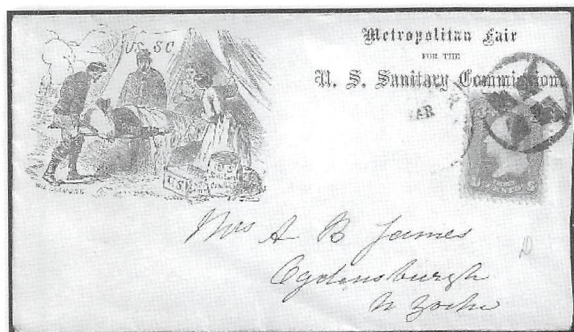 Metropolitan Fair
FOR THE
U. S. Sanitary Commission
U S S C
AR
Mrs A B James
Ogdensburgh
N York